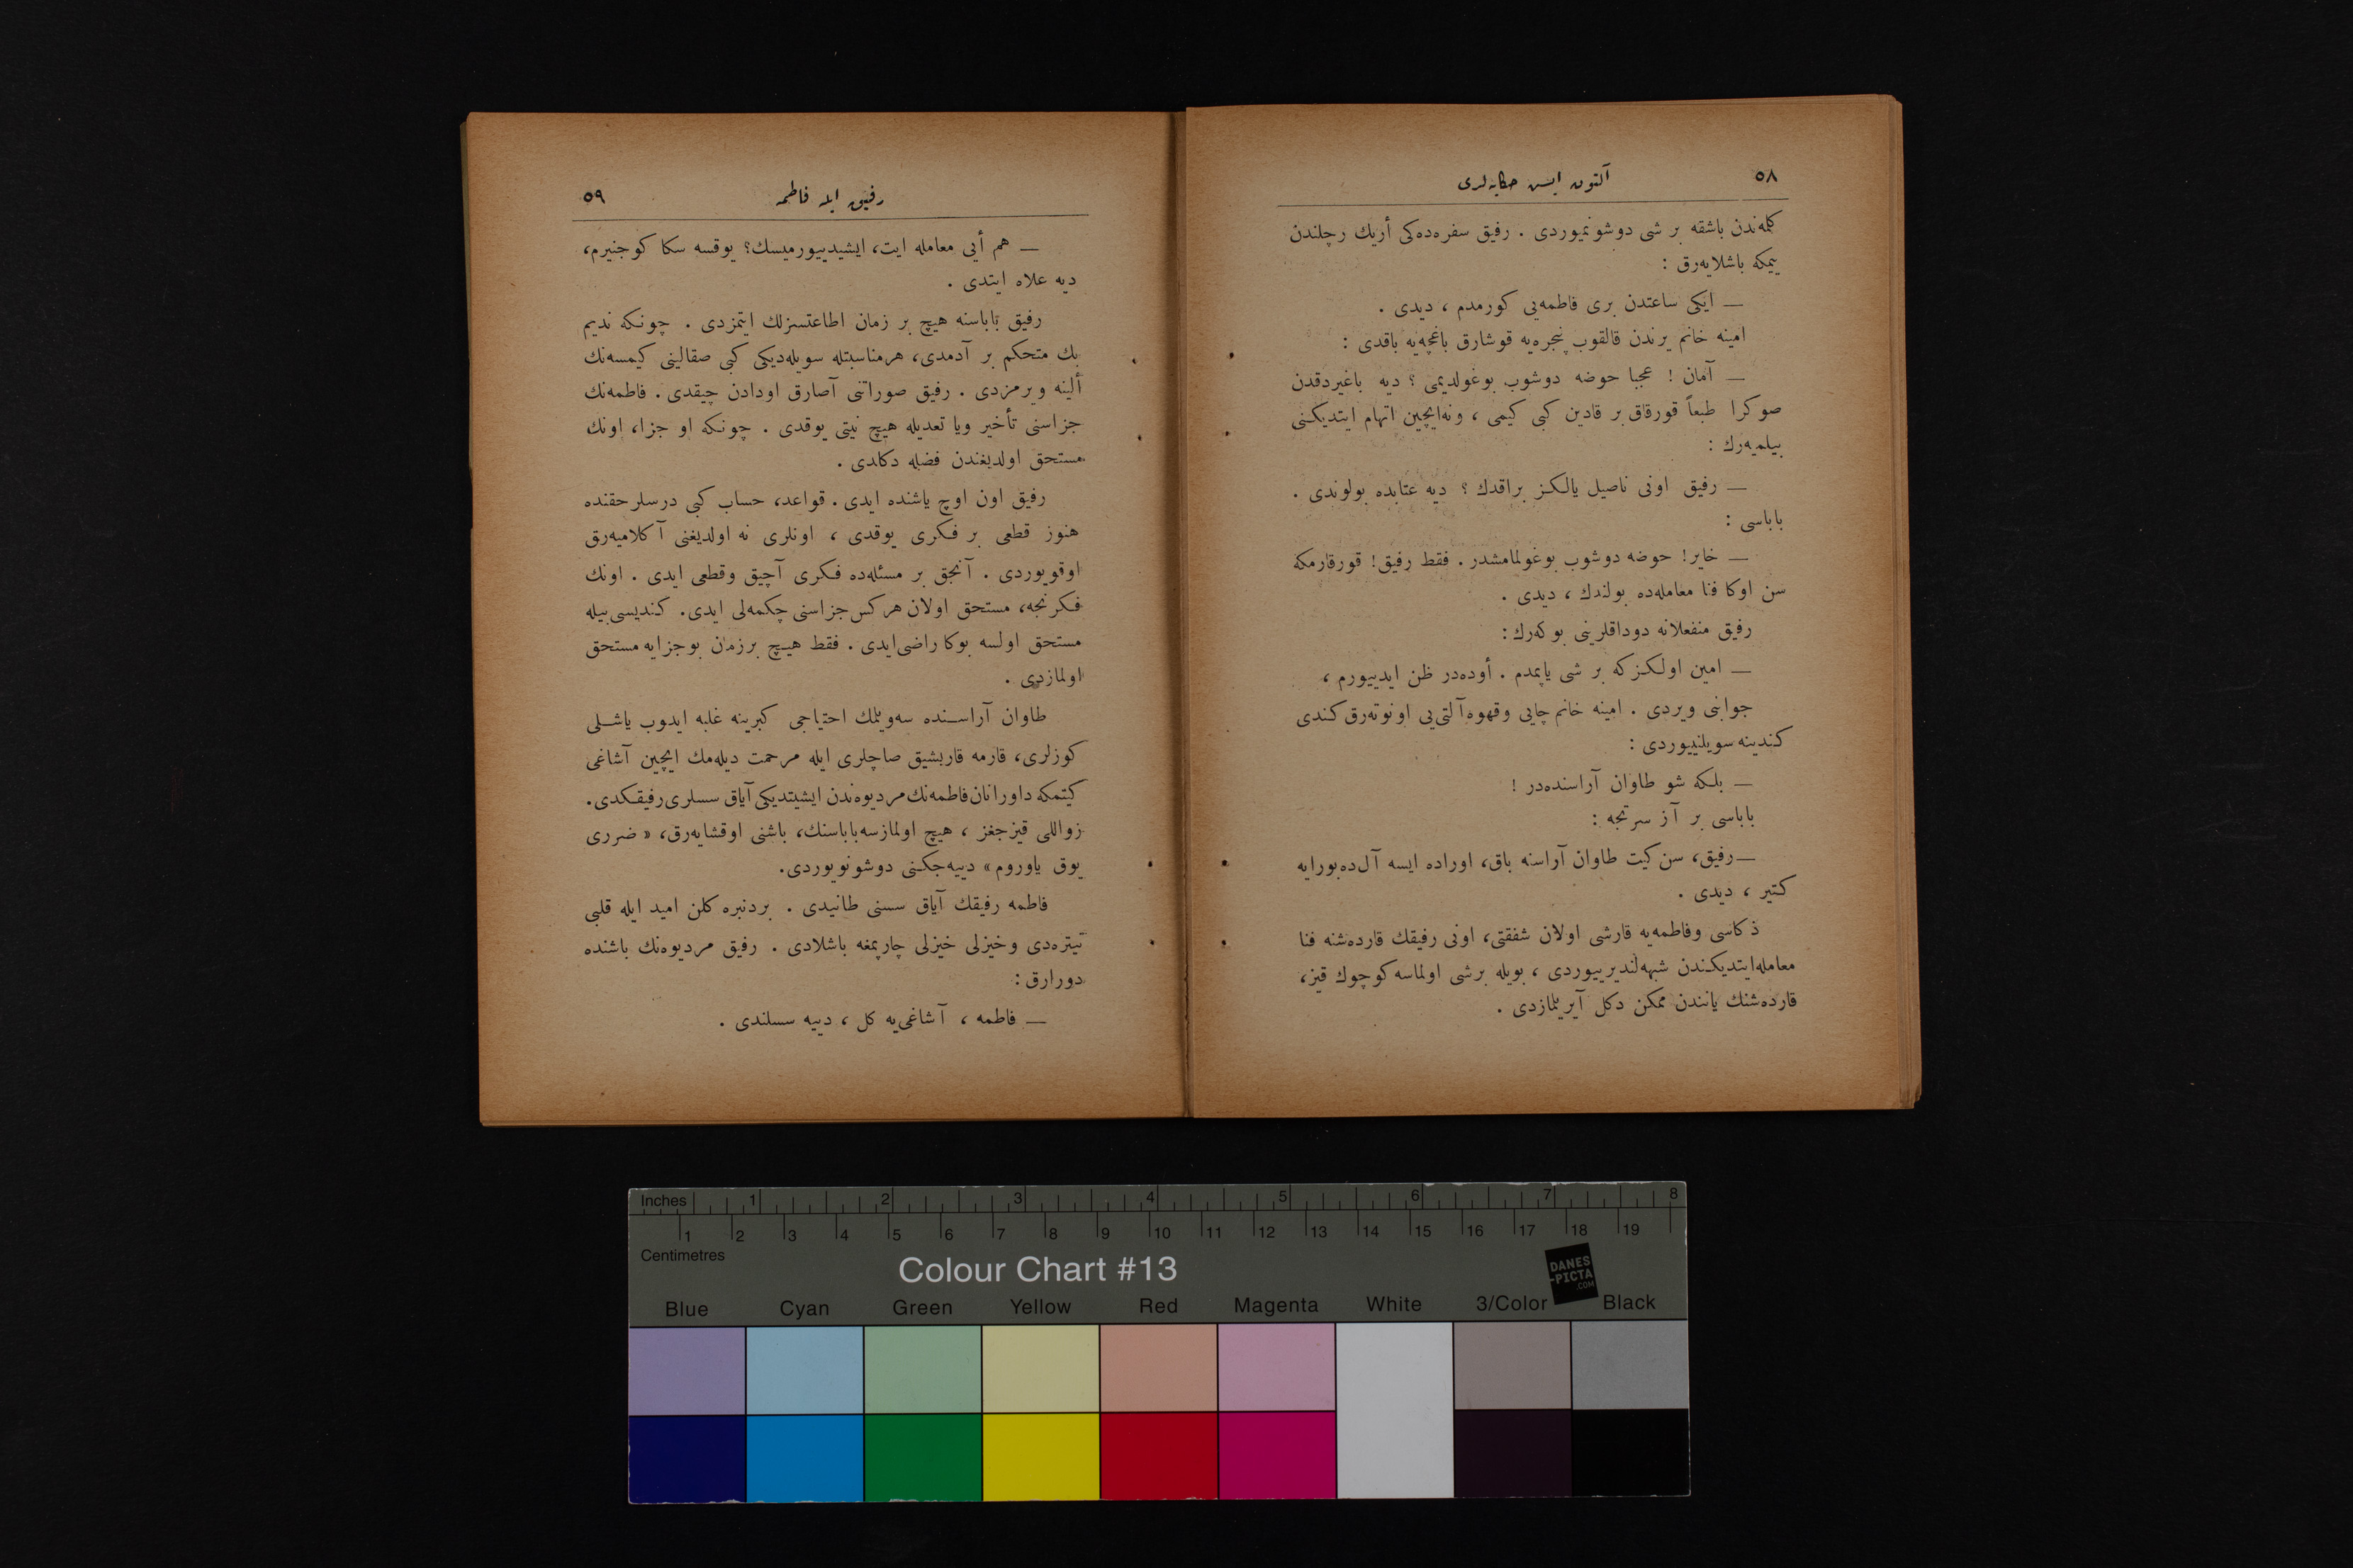 ٥٨
آلتون ایسی حکایه‌لری
كله‌ندن باشقه بر شی دوشونمیوردی . رفیق سفره‌ده‌کی أریك رچلندن
ییمکه باشلایه‌رق :
— ایکی ساعتدن بری فاطمه‌یی كورمدم ، دیدی .
امینه خانم یرندن قالقوب پنجره‌یه قوشارق باغچه‌یه باقدی :
— آمان ! عجبا حوضه دوشوب بوغولدیمی ؟ دیه باغیردقدن
صوكرا طبعاً قورقاق بر قادین كبی كیمی ، ونه‌ایچین اتهام ایتدیكنی
بیلمیه‌رك :
— رفیق اونی ناصیل یالكز براقدك ؟ دیه عتابده بولوندی .
باباسی :
— خایر! حوضه دوشوب بوغولمامشدر . فقط رفیق! قورقارمكه
سن اوكا فنا معامله‌ده بولندك ، دیدی .
رفیق منفعلانه دوداقلرینی بوكه‌رك :
— امین اولكزكه بر شی یاپمدم . أوده‌در ظن ایدییورم ،
جوابنی ویردی . امینه خانم چایی وقهوه‌آلتی‌یی اونوته‌رق كندی
كندینه سویلنییوردی :
— بلكه شو طاوان آراسنده‌در !
باباسی بر آز سرتجه :
— رفیق، سن كیت طاوان آراسنه باق، اوراده ایسه آل‌ده‌بورایه
كتیر ، دیدی .
ذكاسی وفاطمه‌یه قارشی اولان شفقتی، اونی رفیقك قارده‌شنه فنا
معامله‌ایتدیكندن شبهه‌لندیرییوردی ، بویله برشی اولماسه كوچوك قیز،
قارده‌شنك یانندن ممكن دكل آیریلمازدی .
رفیق ایله فاطمه
٥٩
— هم أیی معامله ایت، ایشیدییورمیسك؟ یوقسه سكا كوجنیرم،
دیه علاه ایتدی .
رفیق باباسنه هیچ بر زمان اطاعتسزلك ایتمزدی . چونكه ندیم
بك متحكم بر آدمدی، هرمناسبتله سویله‌دیكی كبی صقالینی كیمسه‌نك
ألینه ویرمزدی . رفیق صوراتنی آصارق اودادن چیقدی . فاطمه‌نك
جزاسنی تأخیر ویا تعدیله هیچ نیتی یوقدی . چونكه او جزا، اونك
مستحق اولدیغندن فضله دكلدی .
رفیق اون اوچ یاشنده ایدی . قواعد، حساب كبی درسلر حقنده
هنوز قطعی بر فكری یوقدی ، اونلری نه اولدیغنی آكلامیه‌رق
اوقویوردی . آنجق بر مسئله‌ده فكری آچیق وقطعی ایدی . اونك
فكرنجه، مستحق اولان هركس جزاسنی چكمه‌لی ایدی. كندیسی‌بیله
مستحق اولسه بوكا راضی‌ایدی . فقط هیچ برزمان بوجزایه مستحق
اولمازدی .
طاوان آراسنده سه‌ویلمك احتیاجی كبرینه غلبه ایدوب یاشلی
كوزلری، قارمه قاریشیق صاچلری ایله مرحمت دیله‌مك ایچین آشاغی
كیتمكه داورانان‌فاطمه‌نك‌مردیوه‌ندن ایشیتدیكی آیاق سسلری‌رفیقكدی.
زواللی قیزجغز ، هیچ اولمازسه باباسنك، باشنی اوقشایه‌رق، « ضرری
یوق یاوروم » دییه‌جكنی دوشونویوردی.
فاطمه رفیقك آیاق سسنی طانیدی . بردنبره كلن امید ایله قلبی
تیتره‌دی وخیزلی خیزلی چارپمغه باشلادی . رفیق مردیوه‌نك باشنده
دورارق :
— فاطمه ، آشاغی‌یه كل ، دییه سسلندی .
Inches 1 2 3 4 5 6 7 8
1 2 3 4 5 6 7 8 9 10 11 12 13 14 15 16 17 18 19
Centimetres
Colour Chart #13
DANES
-PICTA
.COM
Blue Cyan Green Yellow Red Magenta White 3/Color Black